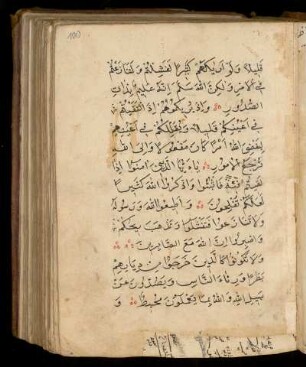 قليلا ولو أراكهم كثيرا لفشلتم ولتنازعتم
في الأمر ولكن الله سلم إنه عليم بذات
الصدور وإذ يريكموهم إذ التقيتم
في أعينكم قليلا ويقللكم في أعينهم
ليقضي الله أمرا كان مفعولا وإلى الله
ترجع الأمور يا أيها الذين آمنوا إذا
لقيتم فئة فاثبتوا واذكروا الله كثيرا
لعلكم تفلحون وأطيعوا الله ورسوله
ولا تنازعوا فتفشلوا وتذهب ريحكم
واصبروا إن الله مع الصابرين
ولا تكونوا كالذين خرجوا من ديارهم
بطرا ورئاء الناس ويصدون عن
سبيل الله والله بما يعملون محيط و